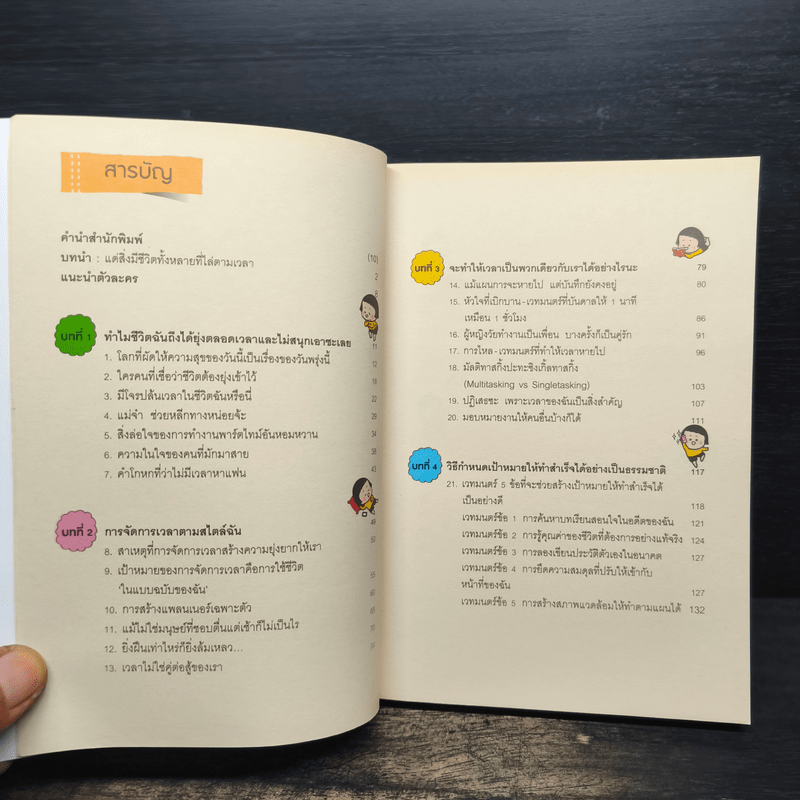 สารบัญ
คำนำสำนักพิมพ์
บทนำ : แด่สิ่งมีชีวิตทั้งหลายที่ไล่ตามเวลา (10)
แนะนำตัวละคร 2
บทที่ 1 ทำไมชีวิตฉันถึงได้ยุ่งตลอดเวลาและไม่สนุกเอาซะเลย 11
1. โลกที่ผัดให้ความสุขของวันนี้เป็นเรื่องของวันพรุ่งนี้ 12
2. ใครคนที่เชื่อว่าชีวิตต้องยุ่งเข้าไว้ 18
3. มีโจรปล้นเวลาในชีวิตฉันหรือนี่ 22
4. แม่จ๋า ช่วยหลีกทางหน่อยจ้ะ 29
5. สิ่งล่อใจของการทำงานพาร์ตไทม์อันหอมหวาน 34
6. ความในใจของคนที่มักมาสาย 38
7. คำโกหกที่ว่าไม่มีเวลาหาแฟน 43
บทที่ 2 การจัดการเวลาตามสไตล์ฉัน 49
8. สาเหตุที่การจัดการเวลาสร้างความยุ่งยากให้เรา 50
9. เป้าหมายของการจัดการเวลาคือการใช้ชีวิต
'ในแบบฉบับของฉัน' 55
10. การสร้างแพลนเนอร์เฉพาะตัว 60
11. แม้ไม่ใช่มนุษย์ที่ชอบตื่นแต่เช้าก็ไม่เป็นไร 65
12. ยิ่งฝืนเท่าไหร่ก็ยิ่งล้มเหลว... 70
13. เวลาไม่ใช่คู่ต่อสู้ของเรา
บทที่ 3 จะทำให้เวลาเป็นพวกเดียวกับเราได้อย่างไรนะ 79
14. แม้แผนการจะหายไป แต่บันทึกยังคงอยู่ 80
15. หัวใจที่เบิกบาน - เวทมนตร์ที่บันดาลให้ 1 นาที
เหมือน 1 ชั่วโมง 86
16. ผู้หญิงวัยทำงานเป็นเพื่อน บางครั้งก็เป็นคู่รัก 91
17. การไหล - เวทมนตร์ที่ทำให้เวลาหายไป 96
18. มัลติทาสกิ้งปะทะซิงเกิ้ลทาสกิ้ง
(Multitasking vs Singletasking) 103
19. ปฏิเสธซะ เพราะเวลาของฉันเป็นสิ่งสำคัญ 107
20. มอบหมายงานให้คนอื่นบ้างก็ได้ 111
บทที่ 4 วิธีกำหนดเป้าหมายให้ทำสำเร็จได้อย่างเป็นธรรมชาติ 117
21. เวทมนตร์ 5 ข้อที่จะช่วยสร้างเป้าหมายให้ทำสำเร็จได้
เป็นอย่างดี 118
เวทมนตร์ข้อ 1 การค้นหาบทเรียนสอนใจในอดีตของฉัน 121
เวทมนตร์ข้อ 2 การรู้คุณค่าของชีวิตที่ต้องการอย่างแท้จริง 124
เวทมนตร์ข้อ 3 การลองเขียนประวัติตัวเองในอนาคต 127
เวทมนตร์ข้อ 4 การยึดความสมดุลที่ปรับให้เข้ากับ
หน้าที่ของฉัน 127
เวทมนตร์ข้อ 5 การสร้างสภาพแวดล้อมให้ทำตามแผนได้ 132